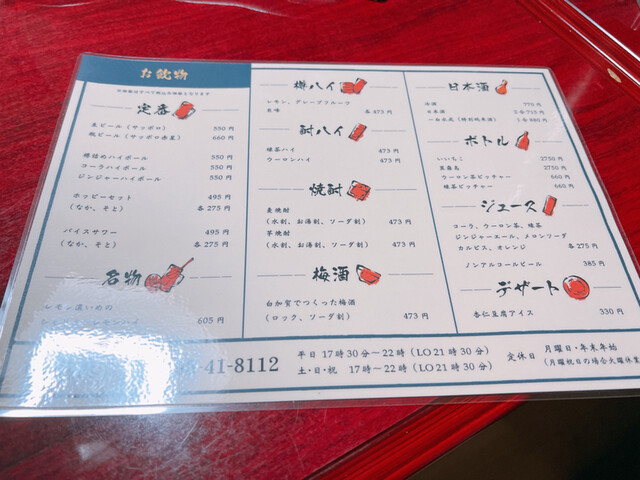 お飲物
定番
生ビール（サッポロ） 550円
瓶ビール（サッポロ赤星） 660円
樽詰めハイボール 550円
コーラハイボール 550円
ジンジャーハイボール 550円
ホッピーセット 495円
（なか、そと） 各275円
バイスサワー 495円
（なか、そと） 各275円
名物
レモン濃いめの
605円
樽ハイ
レモン、グレープフルーツ
各473円
酎ハイ
緑茶ハイ 473円
ウーロンハイ 473円
焼酎
麦焼酎
（水割、お湯割、ソーダ割） 473円
芋焼酎
（水割、お湯割、ソーダ割） 473円
梅酒
白加賀でつくった梅酒
（ロック、ソーダ割） 473円
日本酒
冷酒 770円
1合715円
1合880円
ボトル
いいちこ 2750円
黒霧島 2750円
ウーロン茶ピッチャー 660円
緑茶ピッチャー 660円
ジュース
コーラ、ウーロン茶、緑茶
ジンジャーエール、メロンソーダ
カルピス、オレンジ 各275円
ノンアルコールビール 385円
デザート
杏仁豆腐アイス 330円
-41-8112
平日 17時30分～22時（LO21時30分）
土・日・祝 17時～22時（LO21時30分）
定休日 月曜日・年末年始
（月曜祝日の場合火曜休業）